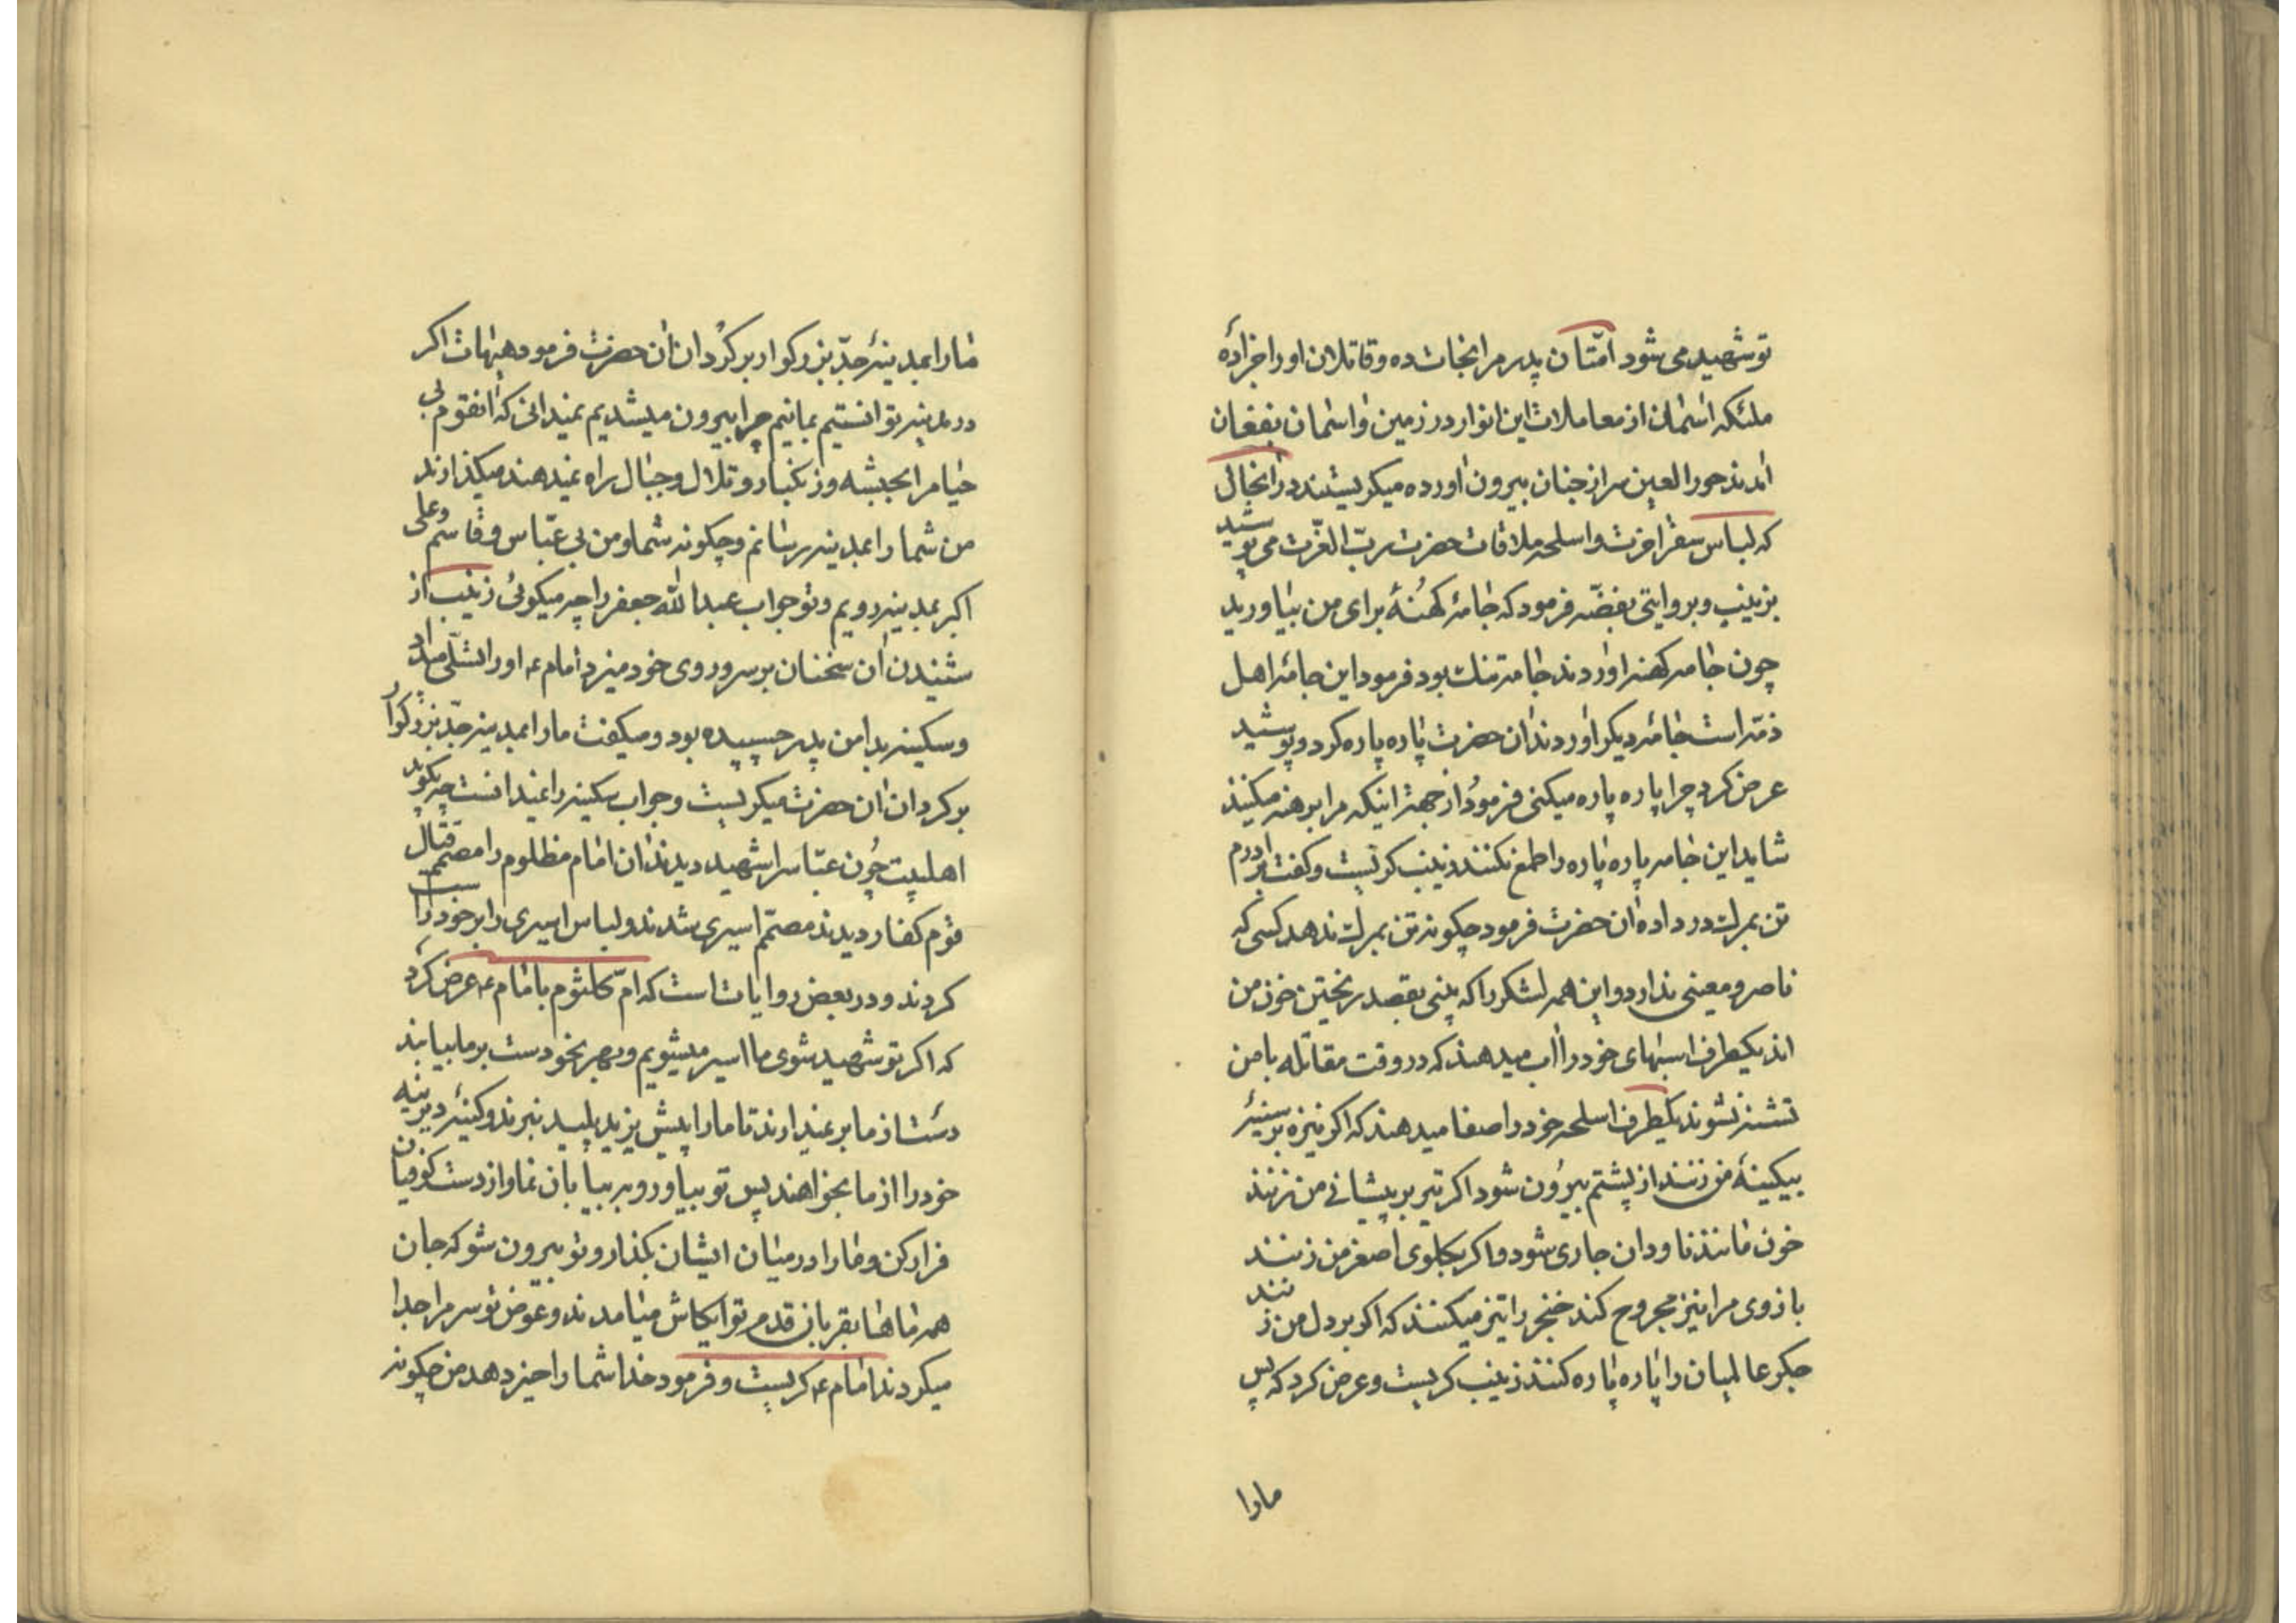 تو شهید می شود امّتان پدر مرا نجات ده و قاتلان او را جزا ده
ملئکه اسمان از معاملات این انوار در زمین و اسمان بفغان
امدند حور العین سر از جنان بیرون اورده میکریستند در انحال
که لباس سفر اخرت و اسلحه ملاقات حضرت ربّ العزّت می پوشید
بزینب و بروایتی بفضّه فرمود که جامهٔ کهنهٔ برای من بیاورید
چون جامه کهنه اوردند جامه تنک بود فرمود این جامهٔ اهل
ذمّه است جامهٔ دیکر اوردند ان حضرت پاره پاره کرد و پوشید
عرض کرد چرا پاره پاره میکنی فرمود از جهة اینکه مرا برهنه میکنند
شاید این جامه پاره پاره را طمع نکنند زینب کریست و کفت برادرم
تن بمرک در داده ان حضرت فرمود چکونه تن بمرک ندهد کسی که
ناصر و معینی ندارد و این همه لشکر را که بینی بقصد ریختن خون من
اند یکطرف اسبهای خود را اب میدهند که در وقت مقاتله با من
تشنه نشوند یکطرف اسلحه خود را صفا میدهند که اکر نیزه بر سینهٔ
بیکینهٔ من زنند از پشتم بیرون شود اکر تیر بر پیشانی من زنند
خون مانند ناودان جاری شود و اکر بکلوی اصغر من زنند
بازوی مرا نیز مجروح کند خنجر را تیز میکنند که اکر بر دل من زنند
جکر عالمیان را پاره پاره کنند زینب کریست و عرض کرد که پس
مارا
مارا بمدینهٔ جدّ بزرکوار برکردان ان حضرت فرمود هیهات اکر
در مدینه توانستیم بمانیم چرا بیرون میشدیم نمیدانی که انقوم بی
حیا مرا بحبشه و زنکبار و تلال و جبال راه نمیدهند میکذارند
من شما را بمدینه رسانم و چکونه شما و من بی عبّاس و قاسم و علی
اکبر بمدینه رویم و تو جواب عبدالله جعفر را چه میکوئی زینب از
شنیدن ان سخنان بر سر و روی خود میزد امام ع او را تسلّی میداد
و سکینه بدامن پدر چسپیده بود و میکفت مارا بمدینه جدّ بزرکوار
برکردان ان حضرت میکریست و جواب سکینه را نمیدانست چه بکوید
اهلبیت چون عبّاس را شهید دیدند ان امام مظلوم را مصمّم قتال
قوم کفار دیدند مصمّم اسیری شدند و لباس اسیری را بر خود راست
کردند و در بعض روایات است که امّ کلثوم با امام ع عرض کرد
که اکر تو شهید شوی ما اسیر میشویم و بهر نحو دست بر ما بیابند
دست از ما بر نمیدارند تا ما را پیش یزید پلید نبرند و کینهٔ دیرینه
خود را از ما بخواهند پس تو بیا و رو به بیابان نما و از دست کوفیان
فرار کن و مارا در میان ایشان بکذار و تو بیرون شو که جان
همه ماها بقربان قدم تو ایکاش میامدند و عوض تو سر مرا جدا
میکردند امام ع کریست و فرمود خدا شما را خیر دهد من چکونه